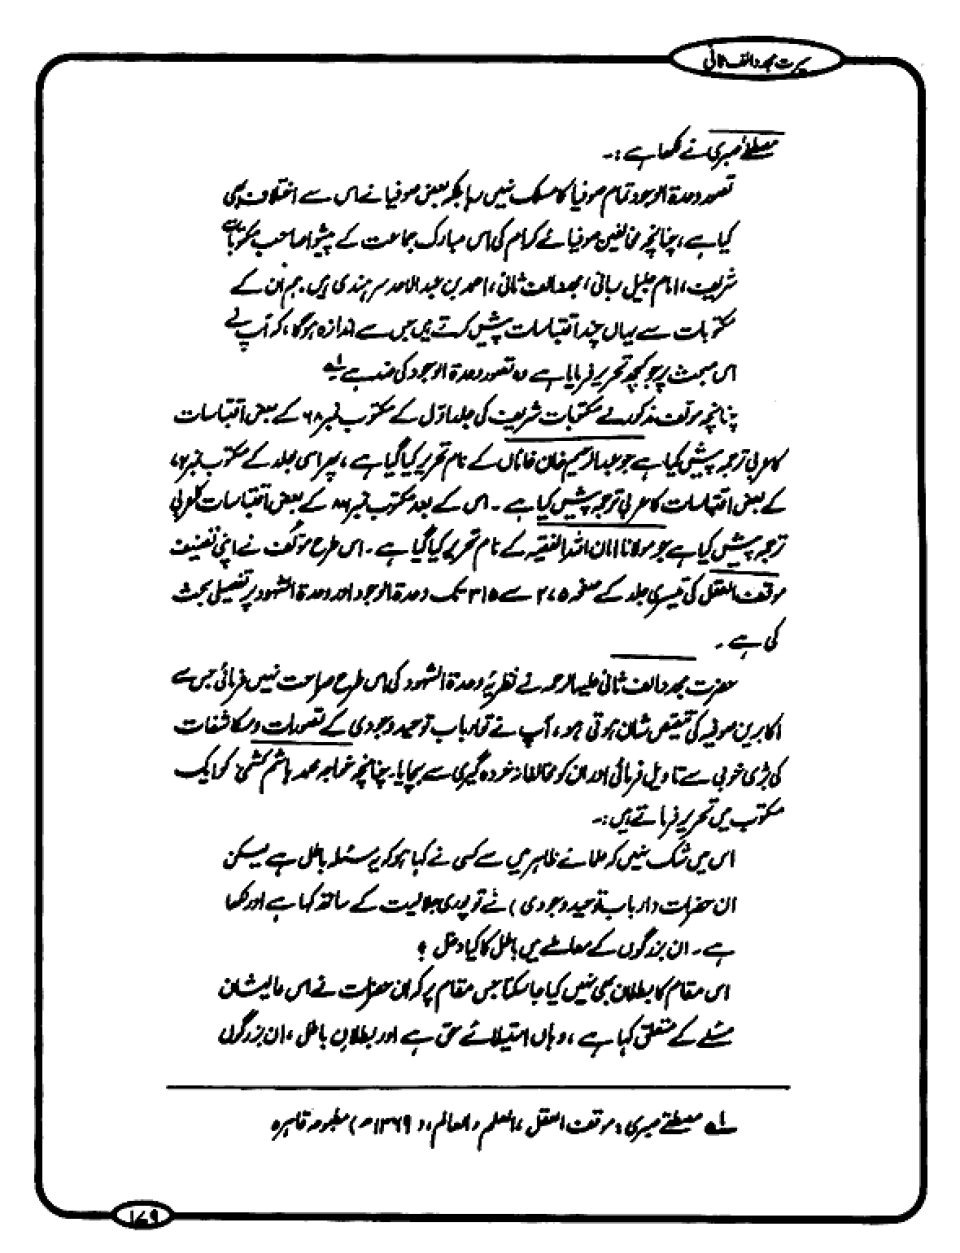 سیرت مجدد الف ثانی
مصطفےٰ صبری نے لکھا ہے :۔
تصور وحدۃ الوجود تمام صوفیا کا مسلک نہیں رہا بلکہ بعض صوفیا نے اس سے اختلاف بھی
کیا ہے ، چنانچہ مخالفین صوفیائے کرام کی اس مبارک جماعت کے پیشوا صاحبِ مکتوبات
شریف ، امام جلیل ربانی ، مجدد الف ثانی ، احمد بن عبد الاحد سرہندی ہیں۔ ہم ان کے
مکتوبات سے یہاں چند اقتباسات پیش کرتے ہیں جس سے اندازہ ہوگا ، کہ آپ نے
اس مبحث پر جو کچھ تحریر فرمایا ہے وہ تصور وحدۃ الوجود کی ضد ہے ؎۱
چنانچہ مؤلف مذکور نے مکتوبات شریف کی جلد اوّل کے مکتوب نمبر ۶۸ کے بعض اقتباسات
کا عربی ترجمہ پیش کیا ہے جو عبد الرحیم خان خاناں کے نام تحریر کیا گیا ہے ، پھر اسی جلد کے مکتوب نمبر
کے بعض اقتباسات کا عربی ترجمہ پیش کیا ہے ۔ اس کے بعد مکتوب نمبر کے بعض اقتباسات کا عربی
ترجمہ پیش کیا ہے جو مولانا امان اللہ الفقیہ کے نام تحریر کیا گیا ہے ۔ اس طرح مؤلف نے اپنی تصنیف
موقف العقل کی تیسری جلد کے صفحہ ۲۷۵ سے ۳۱۵ تک وحدۃ الوجود اور وحدۃ الشہود پر تفصیلی بحث
کی ہے ۔
حضرت مجدد الف ثانی علیہ الرحمہ نے نظریۂ وحدۃ الشہود کی اس طرح صراحت نہیں فرمائی جس سے
اکابرین صوفیہ کی تنقیصِ شان ہوتی ہو ، آپ نے تو ارباب توحید وجودی کے تصورات و مکاشفات
کی بڑی خوبی سے تاویل فرمائی اور ان کو مخالفانہ خوردہ گیری سے بچایا۔ چنانچہ خواجہ محمد ہاشم کشمیؒ کو ایک
مکتوب میں تحریر فرماتے ہیں :۔
اس میں شک نہیں کہ علمائے ظاہر میں سے کسی نے کہا ہو کہ یہ مسئلہ باطل ہے لیکن
ان حضرات (ارباب توحید وجودی) نے تو پوری جلالیت کے ساتھ کہا ہے اور لکھا
ہے ۔ ان بزرگوں کے معاملے میں باطل کا کیا دخل ؟
اس مقام کا بطلان بھی نہیں کیا جا سکتا جس مقام پر کہ ان حضرات نے اس عالیشان
مسئلے کے متعلق کہا ہے ، وہاں استیلائے حق ہے اور بطلانِ باطل ، ان بزرگوں
؎۱ مصطفےٰ صبری : موقف العقل والعلم والعالم ، (۱۳۶۹ھ) مطبوعہ قاہرہ
۱۷۹